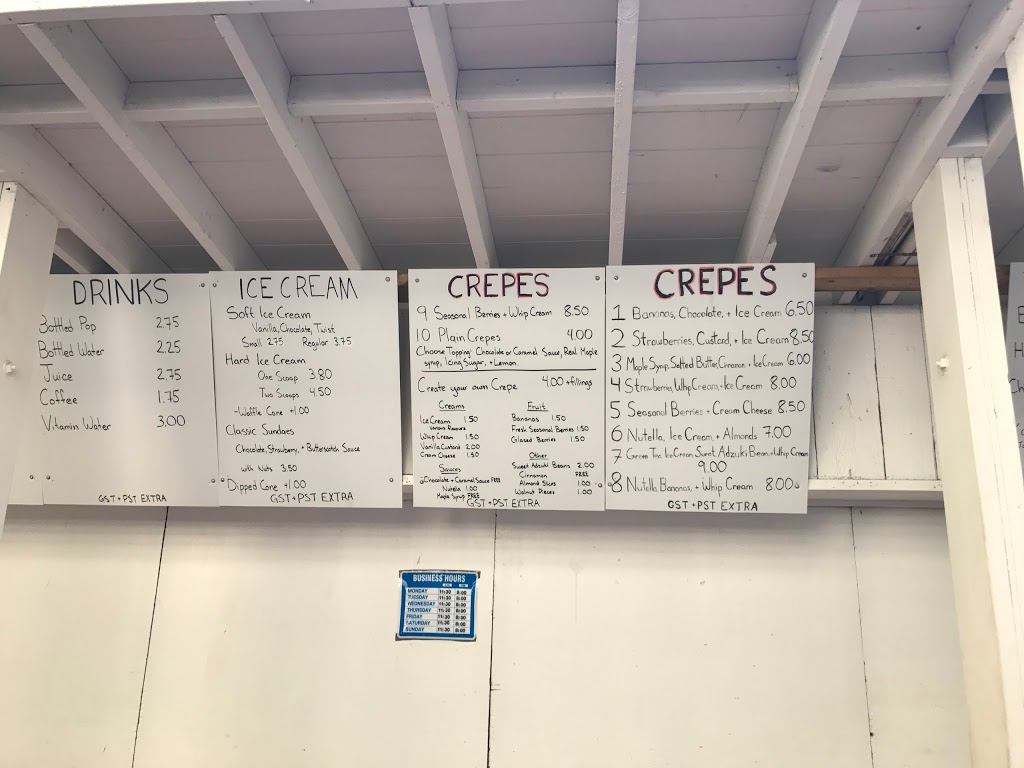 DRINKS
Bottled Pop 2.75
Bottled Water 2.25
Juice 2.75
Coffee 1.75
Vitamin Water 3.00
GST + PST EXTRA
ICE CREAM
Soft Ice Cream
Vanilla, Chocolate, Twist
Small 2.75 Regular 3.75
Hard Ice Cream
One Scoop 3.80
Two Scoops 4.50
-Waffle Cone +1.00
Classic Sundaes
Chocolate, Strawberry, + Butterscotch Sauce
with Nuts 3.50
Dipped Cone +1.00
GST + PST EXTRA
CREPES
9 Seasonal Berries + Whip Cream 8.50
10 Plain Crepes 4.00
Choose Topping: Chocolate or Caramel Sauce, Real Maple
syrup, Icing Sugar, + Lemon.
Create your own Crepe 4.00 + fillings
Creams
Ice Cream 1.50
Various Flavours
Whip Cream 1.50
Vanilla Custard 2.00
Cream Cheese 1.50
Sauces
Chocolate + Caramel Sauce FREE
Nutella 1.00
Maple Syrup FREE
Fruit
Bananas 1.50
Fresh Seasonal Berries 1.50
Glazed Berries 1.50
Other
Sweet Adzuki Beans 2.00
Cinnamon FREE
Almond Slices 1.00
Walnut Pieces 1.00
GST + PST EXTRA
CREPES
1 Bananas, Chocolate, + Ice Cream 6.50
2 Strawberries, Custard, + Ice Cream 8.50
3 Maple Syrup, Salted Butter, Cinnamon, + Ice Cream 6.00
4 Strawberries, Whip Cream, + Ice Cream 8.00
5 Seasonal Berries + Cream Cheese 8.50
6 Nutella, Ice Cream, + Almonds 7.00
7 Green Tea Ice Cream, Sweet Adzuki Bean, + Whip Cream
9.00
8 Nutella, Bananas, + Whip Cream 8.00
GST + PST EXTRA
BUSINESS HOURS
MONDAY 11:30 8:00
TUESDAY 11:30 8:00
WEDNESDAY 11:30 8:00
THURSDAY 11:30 8:00
FRIDAY 11:30 8:00
SATURDAY 11:30 8:00
SUNDAY 11:30 8:00